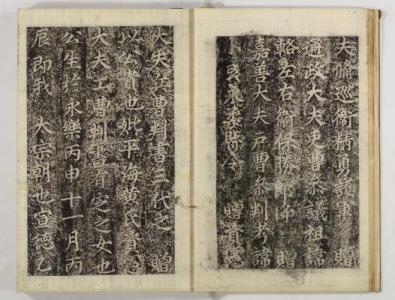 夫倫巡衛精勇護軍 贈
通政大夫吏曹參議祖諱
左右衛郎將 贈
嘉善大夫戶曹參判考諱
縣令 贈資憲
大夫曹判書三代之 贈
以公貴也妣平海黃氏資憲
大夫工曹判書有定之女也
公生於永樂丙申十一月丙
辰即我 太宗朝也宣德乙